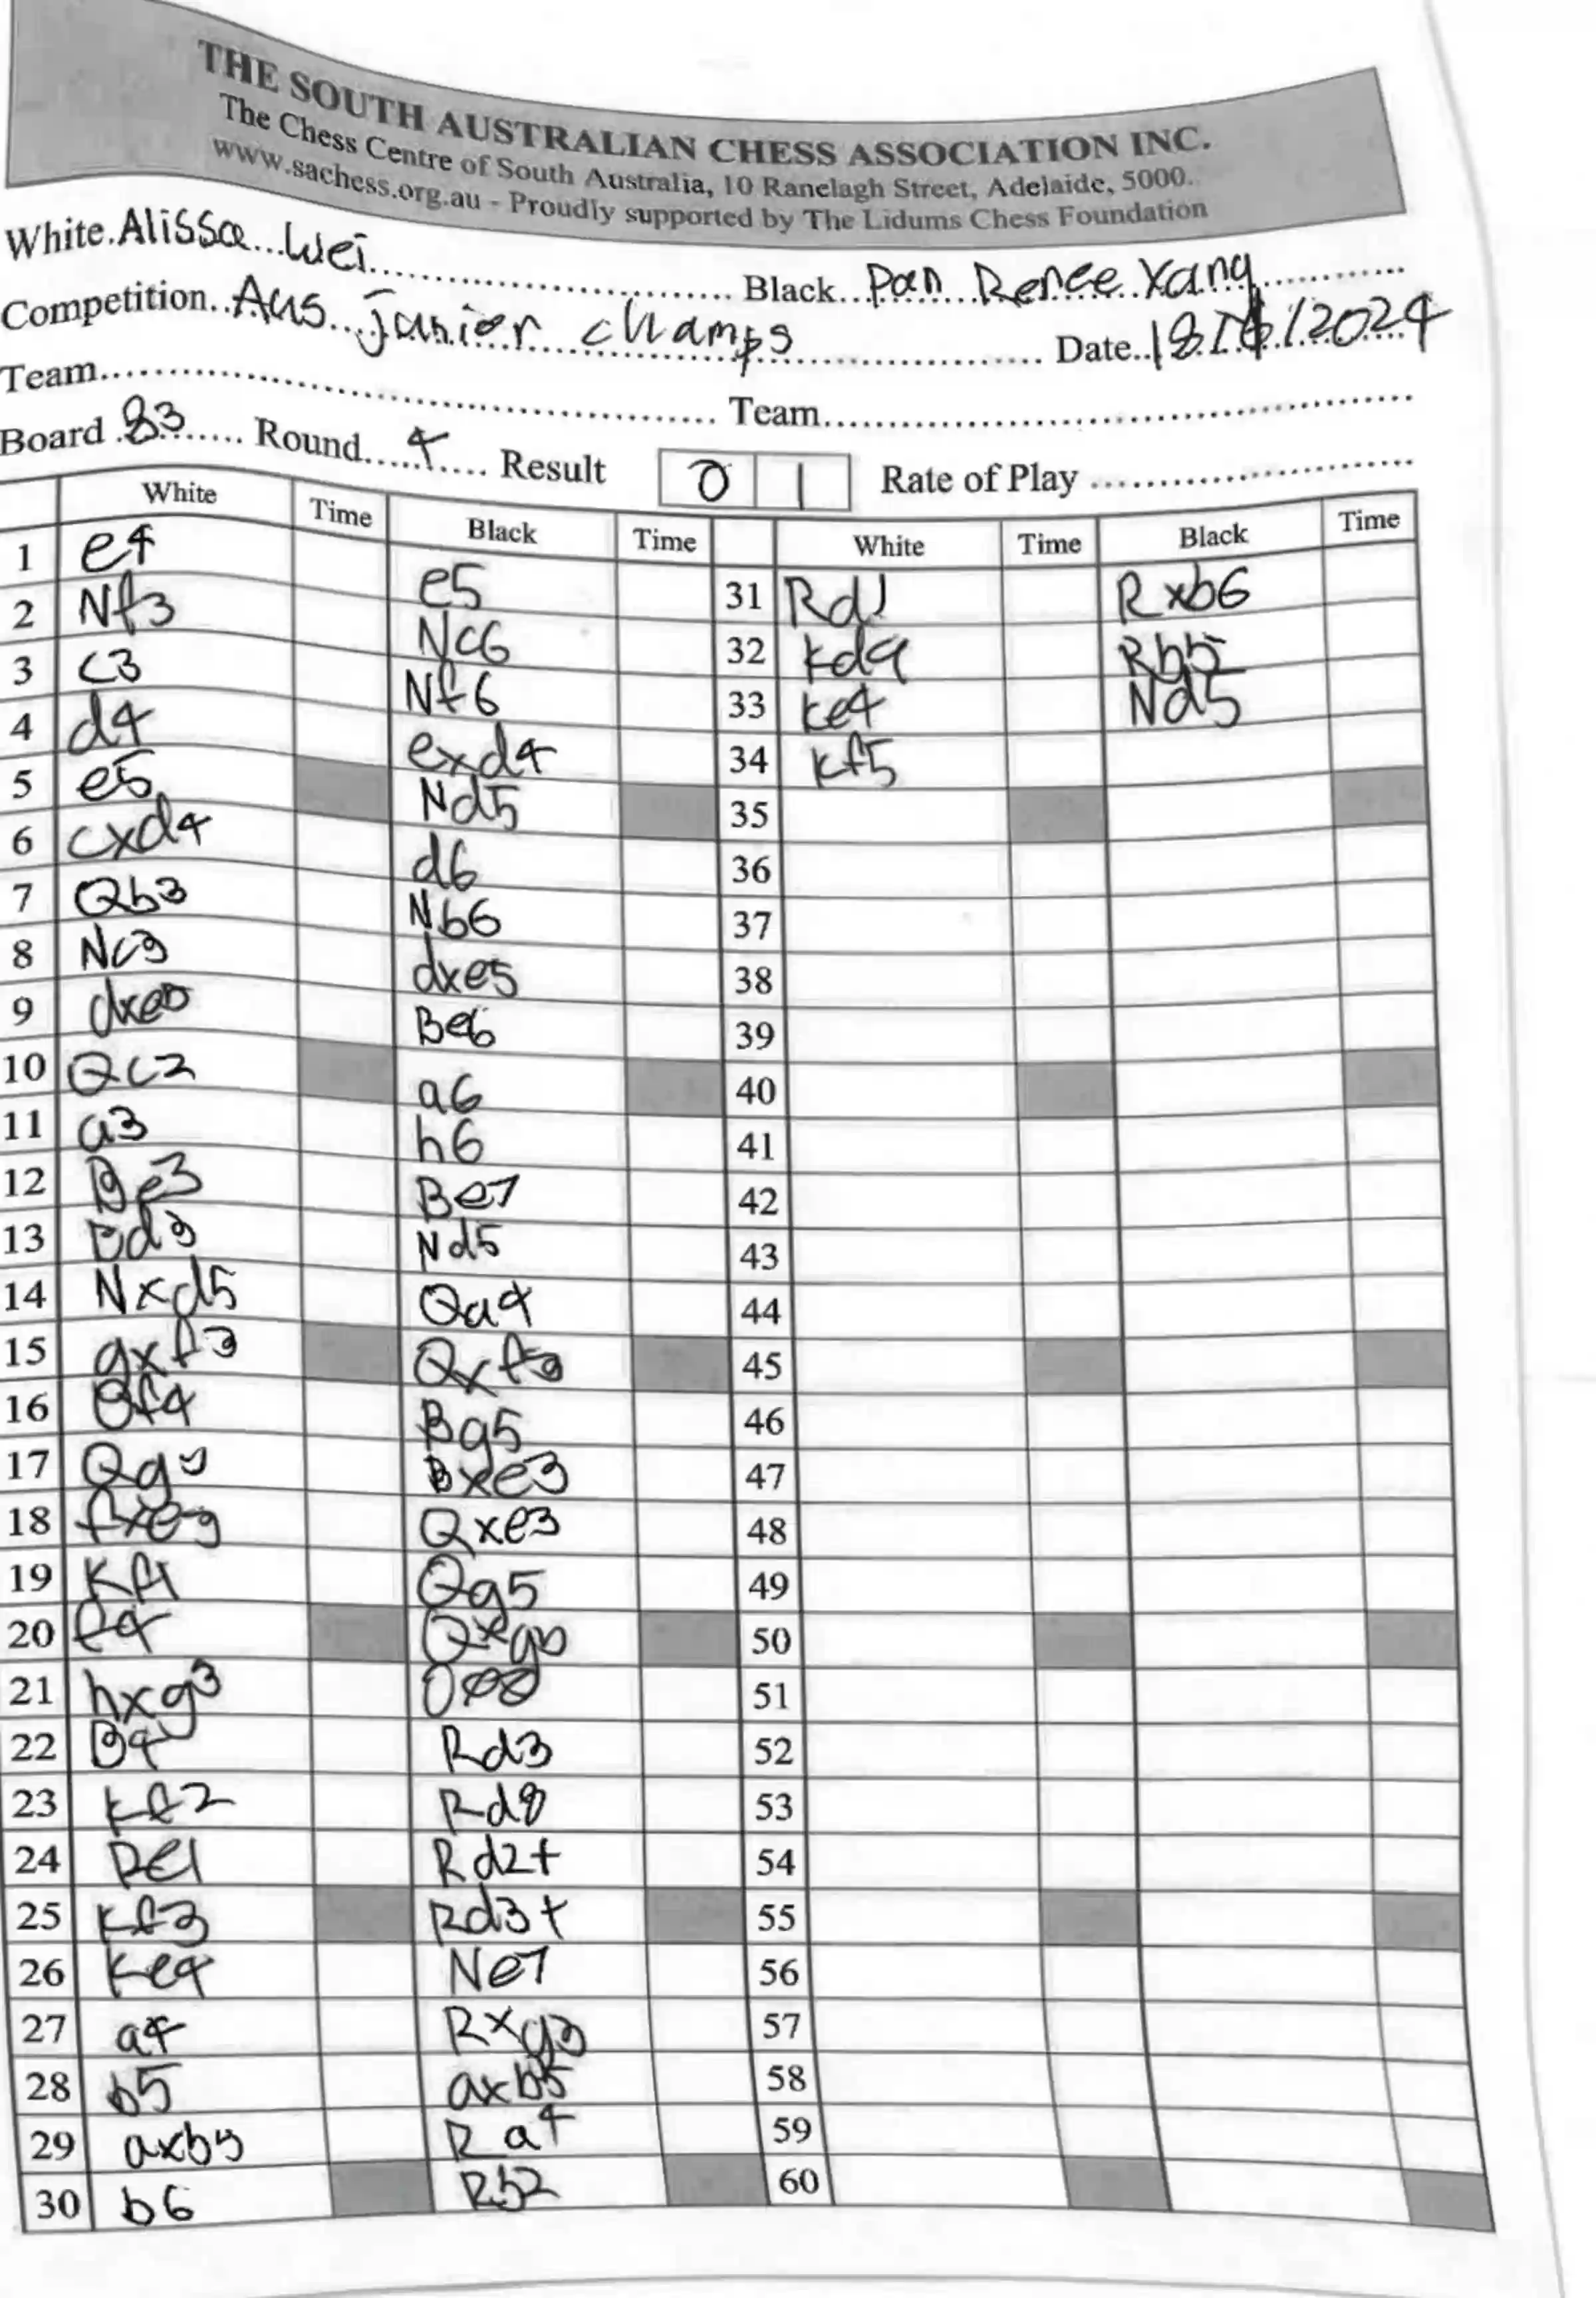 THE SOUTH AUSTRALIAN CHESS ASSOCIATION INC.
The Chess Centre of South Australia, 10 Ranelagh Street, Adelaide, 5000.
www.sachess.org.au - Proudly supported by The Lidums Chess Foundation
White. Alissa Wei Black Pan Renee Yang
Competition Aus Junior Champs Date 18/ /2024
Team Team
Board 83 Round 4 Result 0 1 Rate of Play
White Time Black Time White Time Black Time
1 e4 e5 31 Rd1 Rxb6
2 Nf3 Nc6 32 Kd4 Rb5
3 c3 Nf6 33 Ke4 Nd5
4 d4 exd4 34 Kf5
5 e5 Nd5 35
6 cxd4 d6 36
7 Qb3 Nb6 37
8 Nc3 dxe5 38
9 dxe5 Be6 39
10 Qc2 a6 40
11 a3 h6 41
12 Be3 Be7 42
13 Bd3 Nd5 43
14 Nxd5 Qa4 44
15 gxf3 Qxf3 45
16 Bg5 46
17 Bxe3 47
18 fxe3 Qxe3 48
19 Kf1 Qg5 49
20 f4 50
21 hxg3 51
22 B4 Rd3 52
23 Kf2 Rd8 53
24 Re1 Rd2+ 54
25 Kf3 Rd3+ 55
26 Ke4 Ne7 56
27 a4 Rxg3 57
28 b5 axb5 58
29 axb5 Ra4 59
30 b6 Rb2 60